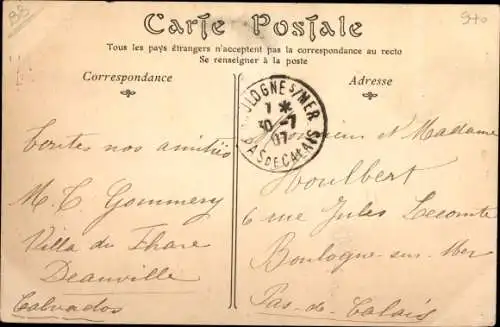 83
940
Carte Postale
Tous les pays étrangers n'acceptent pas la correspondance au recto
Se renseigner à la poste
Correspondance
Adresse
BOULOGNE S/MER
7 *
30 -7
07
PAS DE CALAIS
Toutes nos amitiés
M. C. Gommery
Villa du Phare
Deauville
Calvados
Monsieur et Madame
Houlbert
6 rue Jules Lecomte
Boulogne-sur-Mer
Pas-de-Calais